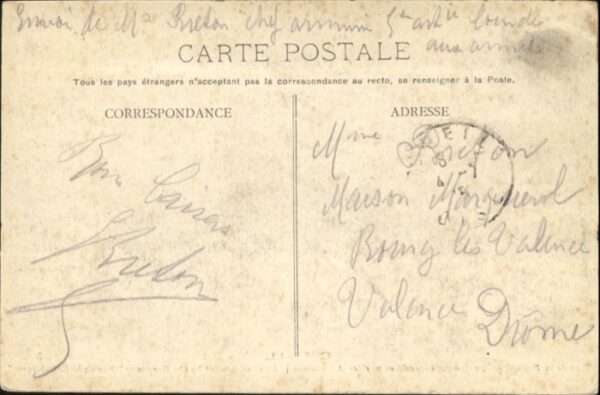 Envoi de Mr Breton chef armurier 5e artie lourde
CARTE POSTALE
aux armées
Tous les pays étrangers n'acceptent pas la correspondance au recto, se renseigner à la Poste.
CORRESPONDANCE
Bons baisers
Breton
ADRESSE
Mme Breton
Maison
Bourg les Valence
Valence
Drôme